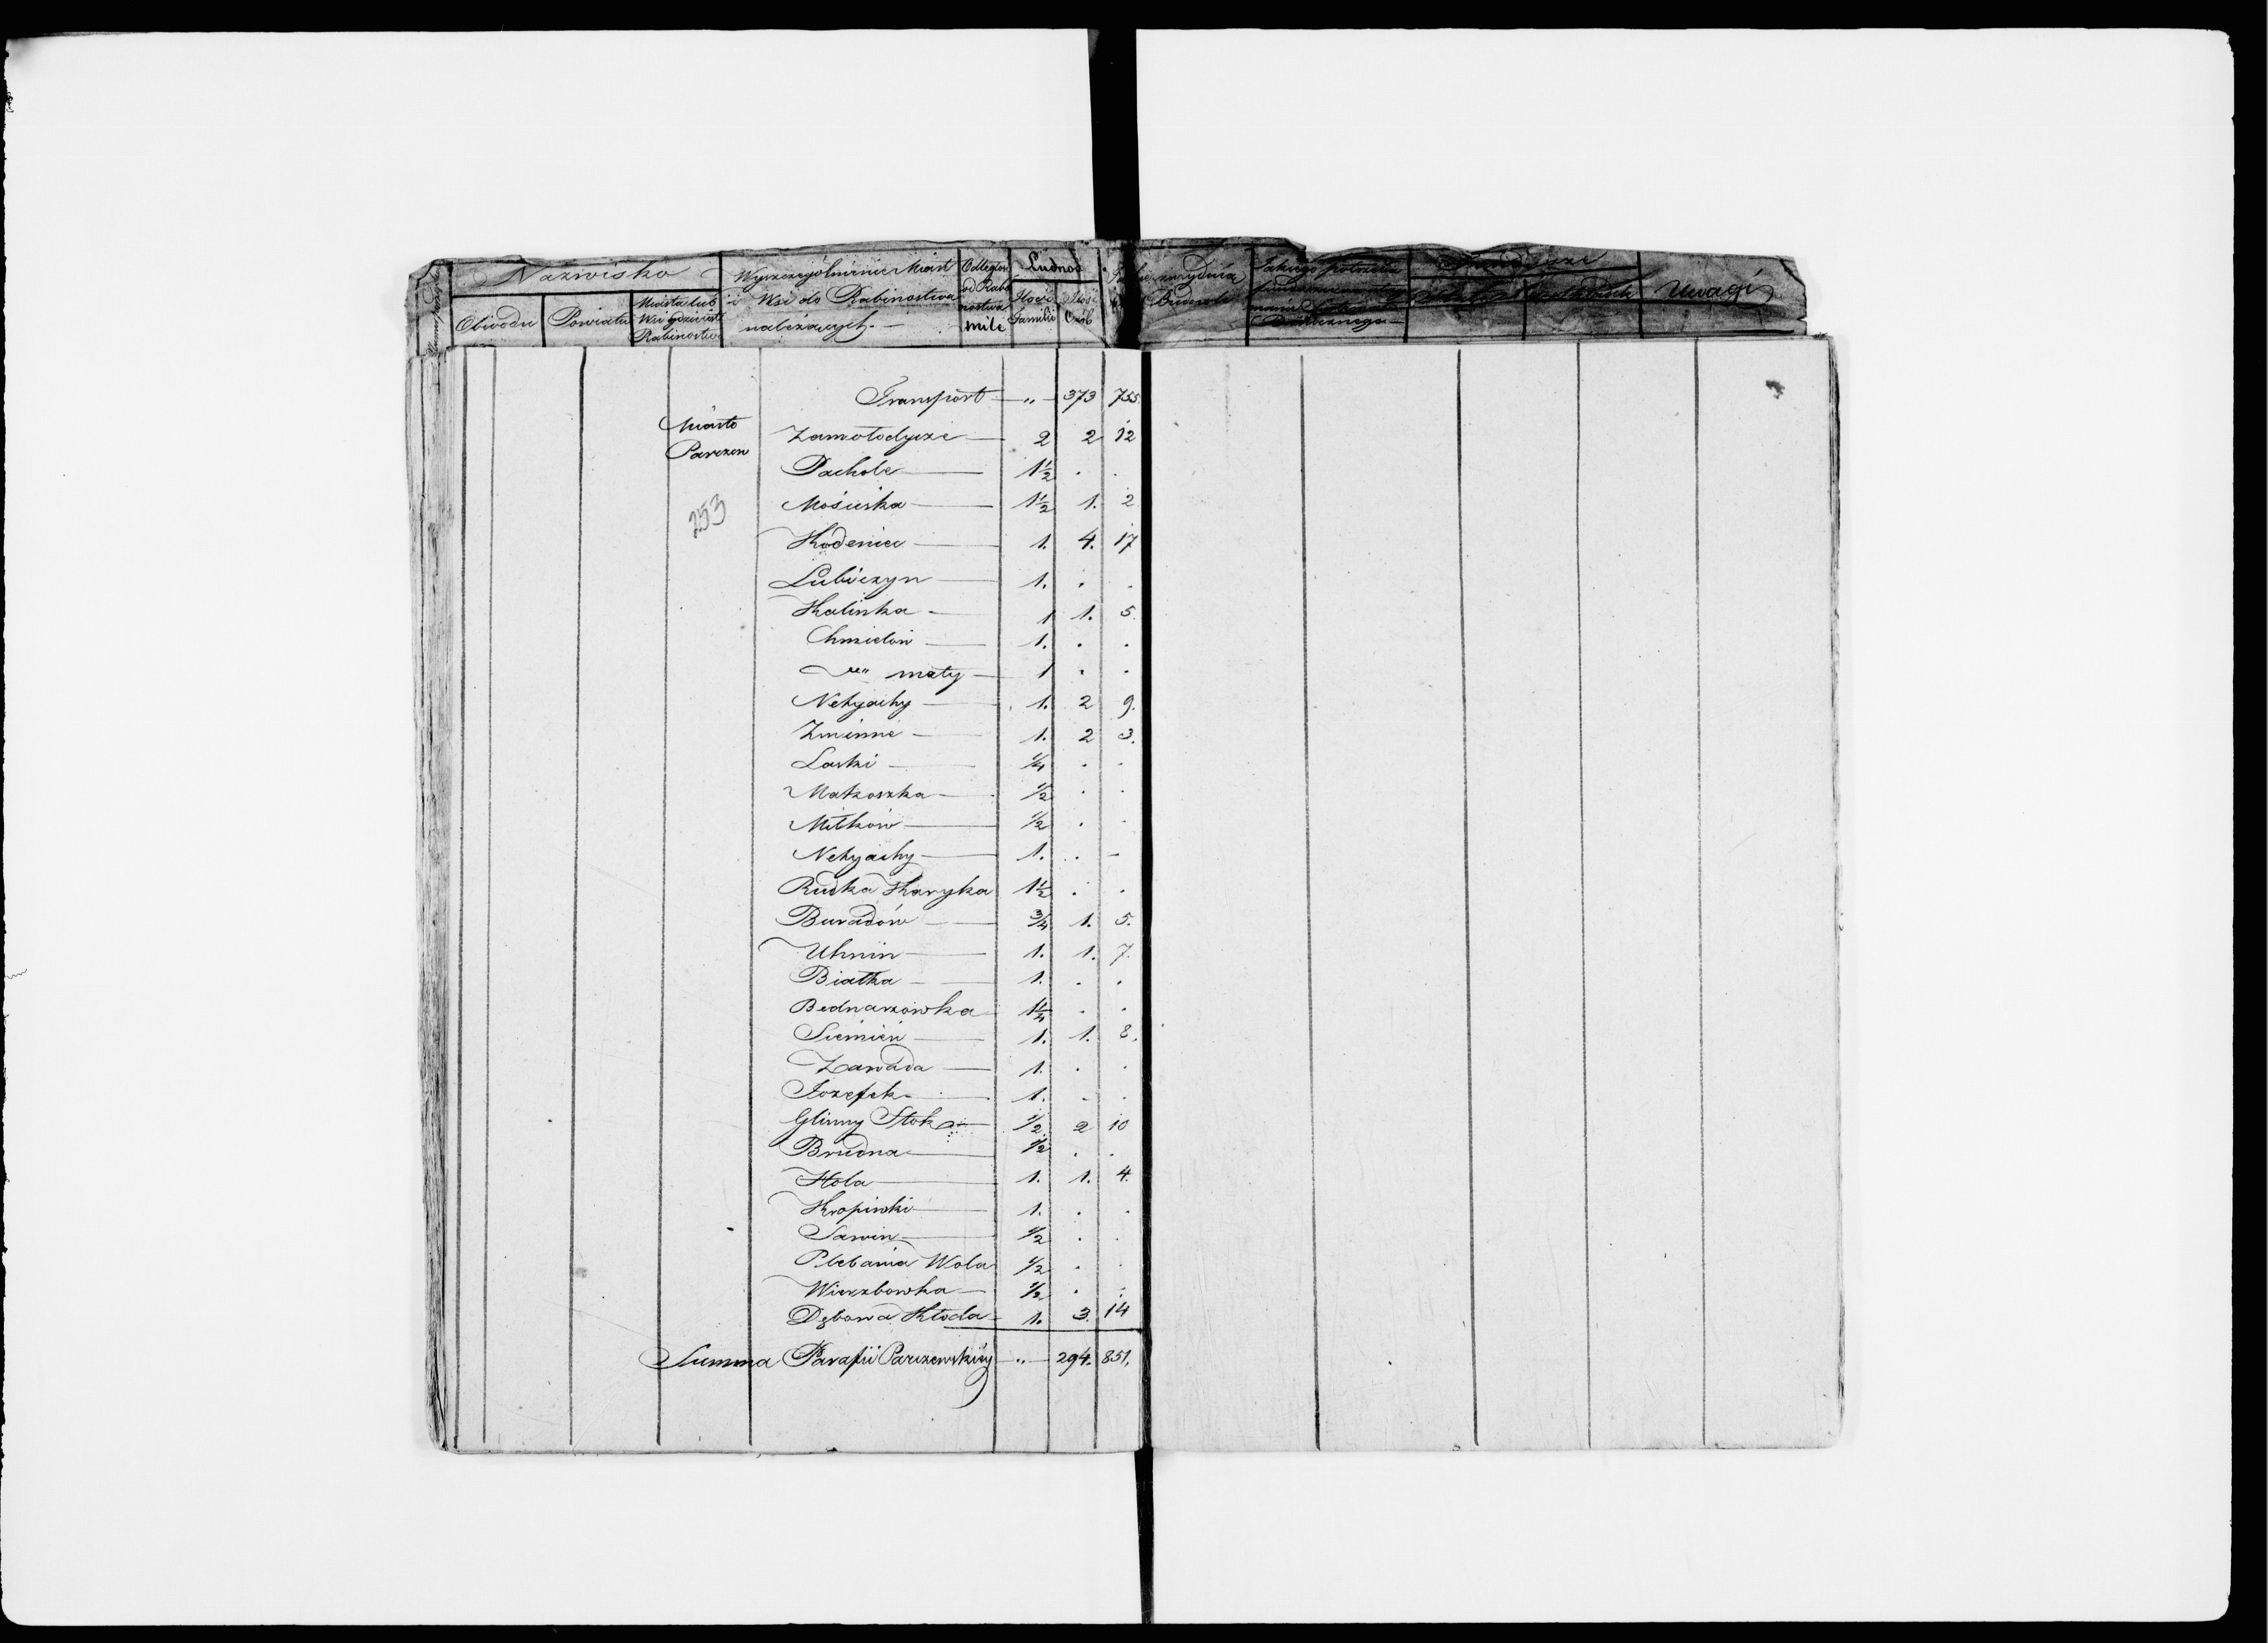 Nazwisko
Obwodu Powiatu Miasta lub Wsi gdzie jest Rabinostwo
Wyszczególnienie Miast
i Wsi do Rabinostwa
należących
Odległość od Rabinostwa mile
Ludność
Ilość Familii Ilość Osób
Uwagi
Transport — „ — 373 755.
Miasto
Parczew
253
Zamołodycze — 2 2 12
Pachole — 1½ . .
Mosciska — 1½ 1. 2
Kodeniec — 1. 4. 17
Lubiczyn — 1. . .
Kalinka — 1 1. 5.
Chmielów — 1. . .
„ mały — 1 . .
Nehyachy — 1. 2 9.
Zminne — 1. 2 3.
Laski — ¼ . .
Makoszka — ½ . .
Milków — ½ . .
Nehyachy — 1. . -
Rudka Skaryka 1½ . .
Buradów — ¾ 1. 5.
Uhnin — 1. 1. 7.
Białka — 1. . .
Bednarzówka 1¼ . .
Siemień — 1. 1. 8.
Zawada — 1. . .
Jozefek — 1. - .
Glinny Stok — ½ 2 10
Brudna — ½ . .
Hola — 1. 1. 4.
Kropiwki — 1. . .
Sawin — ½ . .
Plebania Wola ½ . .
Wierzbowka — ½ . .
Dębowa Kłoda — 1. 3. 14
Summa Parafii Parczewskiéy — „ — 294. 851.